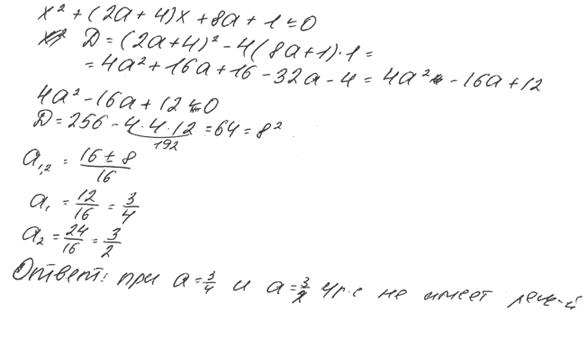 x² + (2a+4)x + 8a + 1 = 0
D = (2a+4)² - 4(8a+1)·1 =
= 4a² + 16a + 16 - 32a - 4 = 4a² - 16a + 12
4a² - 16a + 12 = 0
D = 256 - 4·4·12 = 64 = 8²
192
a₁,₂ = (16 ± 8)/16
a₁ = 12/16 = 3/4
a₂ = 24/16 = 3/2
Ответ: при a = 3/4 и a = 3/2 ур-е не имеет реш-й